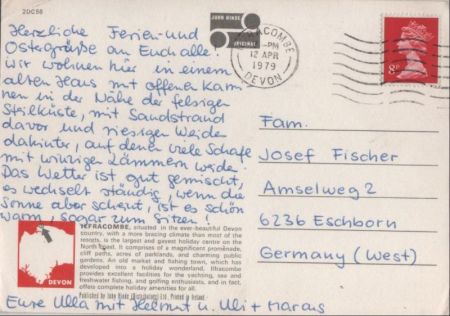 2DC58
Herzliche Ferien- und
Ostergrüße an Euch alle!
Wir wohnen hier in einem
alten Haus mit offenen Kami
nen in der Nähe der felsigen
Steilküste, mit Sandstrand
davor und riesigen Weiden
dahinter, auf denen viele Schafe
mit winzigen Lämmern weiden.
Das Wetter ist gut gemischt,
es wechselt ständig, wenn die
Sonne aber scheint, ist es schön
warm, sogar zum Sitzen!
JOHN HINDE
ORIGINAL
ILFRACOMBE
-PM
12 APR
1979
DEVON
8
Fam.
Josef Fischer
Amselweg 2
6236 Eschborn
Germany (West)
DEVON
ILFRACOMBE, situated in the ever-beautiful Devon
country, with a more bracing climate than most of the
resorts, is the largest and gayest holiday centre on the
North Coast. It comprises of a magnificent promenade,
cliff paths, acres of parklands, and charming public
gardens. An old market and fishing town, which has
developed into a holiday wonderland, Ilfracombe
provides excellent facilities for the yachting, sea and
freshwater fishing, and golfing enthusiasts, and in fact,
offers complete holiday amenities for all.
Published by John Hinde (Distributors) Ltd. Printed in Ireland.
Eure Ulla mit Helmut u. Uli + Marcus